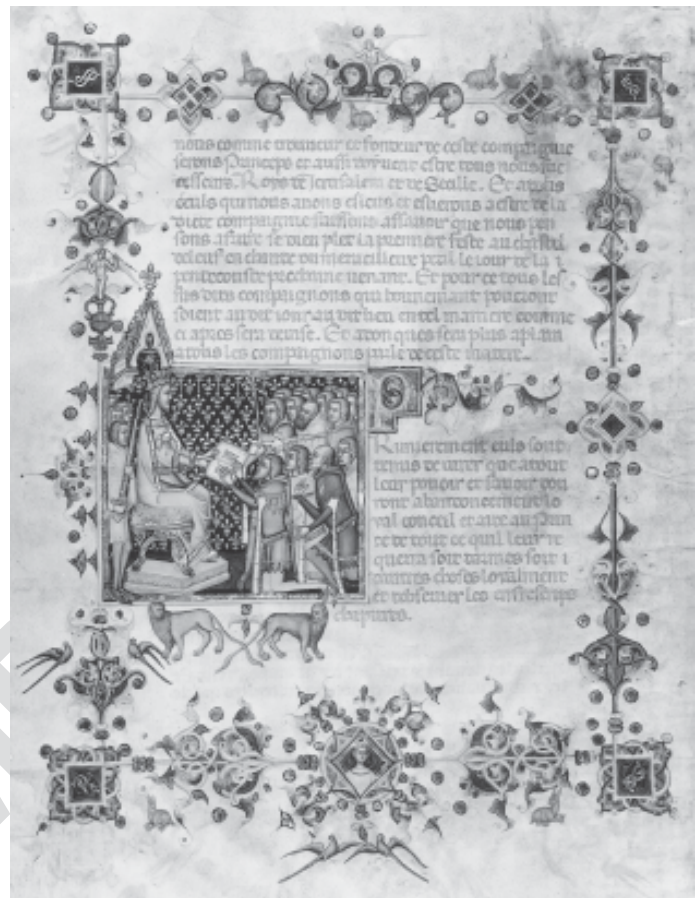 nous comme trouveur et fondeur de ceste compaignie
serons Princeps et aussi devent estre tous nous suc
cesseurs. Roys de Jerusalem et de Secile. Et a tous
ceuls que nous avons esleus et eslirons a estre de la
dicte compaignie faisons assavoir que nous pen
sons a faire se dieu plet la premiere feste au chastel
de leuf en chante du merveilleux peril le jour de la
penthecouste prochaine venant. Et pour ce tous les
sus dits compaignons qui bonnemant pourront
soient au dit jour au dit lieu en tel maniere comme
ci apres sera devise. Et
a tous les compaignons de ceste matere.
Premierement ceuls sont
tenus de jurer que a tout
leur povoir et savoir don
ront abandoneement lo
yal conseil et aide au Prin
ce de tout ce quil leur re
querra soit darmes soit
dautres choses loyalment
et observer les
chapitres.